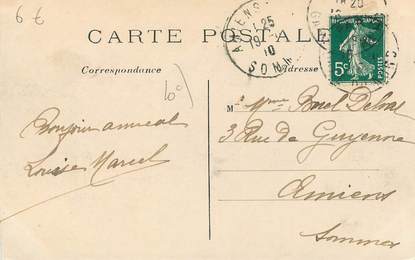 6 €
CARTE POSTALE
AMIENS
1 25
10
SOMME
5c
POSTES
Correspondance
Adresse
10
M Mme
Bonjour amical
Louise Marcel
3 Rue de
Amiens
Somme